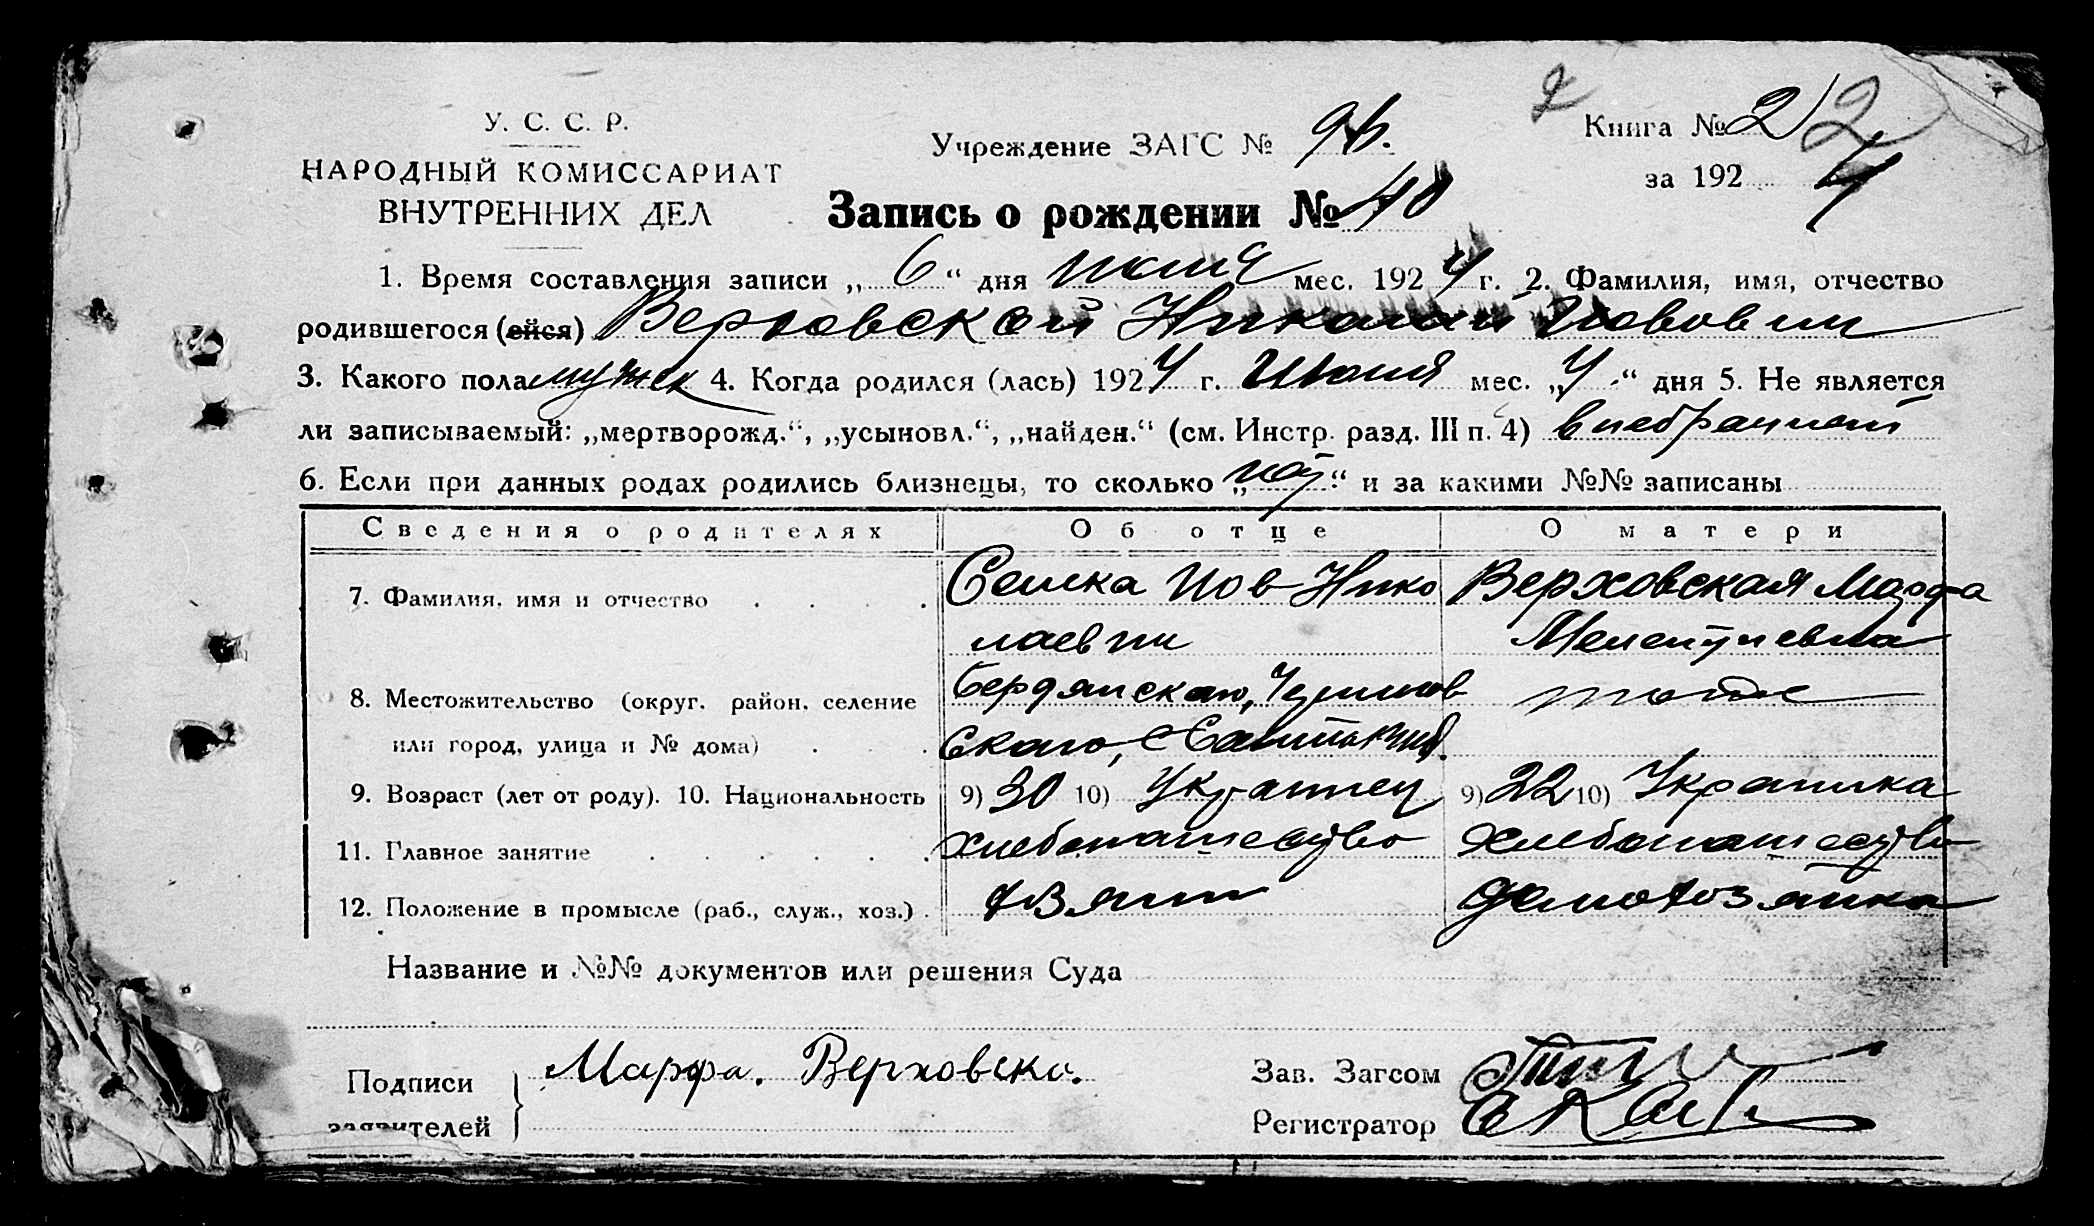 У. С. С. Р.
НАРОДНЫЙ КОМИССАРИАТ
ВНУТРЕННИХ ДЕЛ
Учреждение ЗАГС №
Книга № 2 2
за 1924
Запись о рождении № 40
1. Время составления записи „6“ дня июня мес. 1924 г. 2. Фамилия, имя, отчество
родившегося (ейся) Верховский Николай Иовович
3. Какого пола мужск 4. Когда родился (лась) 1924 г. Июня мес. „4“ дня 5. Не является
ли записываемый: „мертворожд.“, „усыновл.“, „найден.“ (см. Инстр. разд. III п. 4) внебрачный
6. Если при данных родах родились близнецы, то сколько „ “ и за какими №№ записаны
Сведения о родителях Об отце О матери
7. Фамилия, имя и отчество Семка Иов Нико Верховская Марфа
лаевич Мелентиевна
8. Местожительство (округ. район. селение Бердянского, тоже
или город, улица и № дома) ского,
9. Возраст (лет от роду). 10. Национальность 9) 30 10) Украинец 9) 22 10) Украинка
11. Главное занятие хлебопашество хлебопашество
12. Положение в промысле (раб., служ., хоз.) хозяин домохозяйка
Название и №№ документов или решения Суда
Подписи Марфа. Верховска. Зав. Загсом
заявителей Регистратор